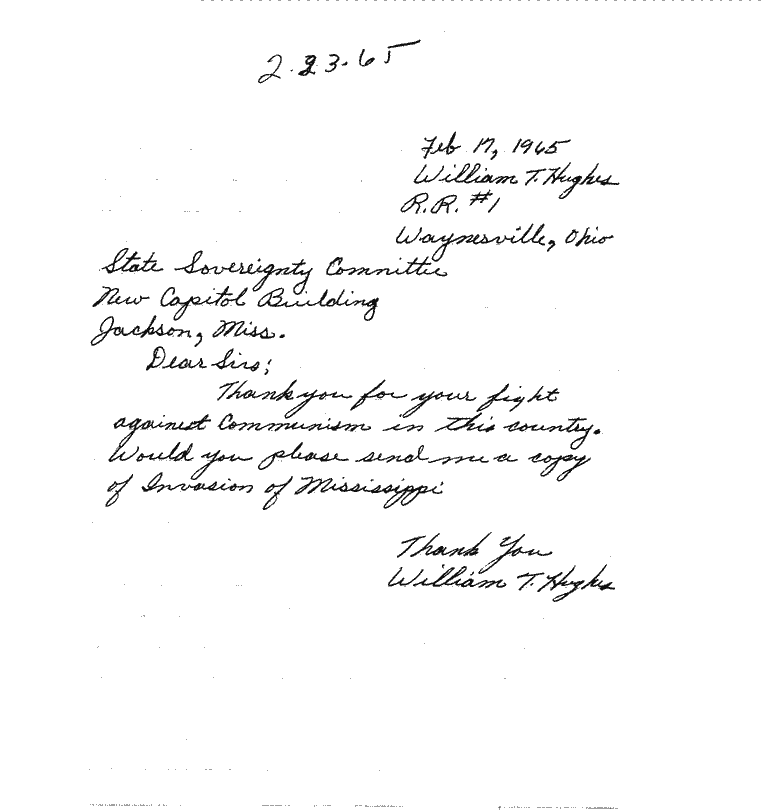 2.23.65
Feb 17, 1965
William T. Hughes
R.R. #1
Waynesville, Ohio
State Sovereignty Committee
New Capitol Building
Jackson, Miss.
Dear Sirs;
Thank you for your fight
against Communism in this country.
Would you please send me a copy
of Invasion of Mississippi
Thank You
William T. Hughes